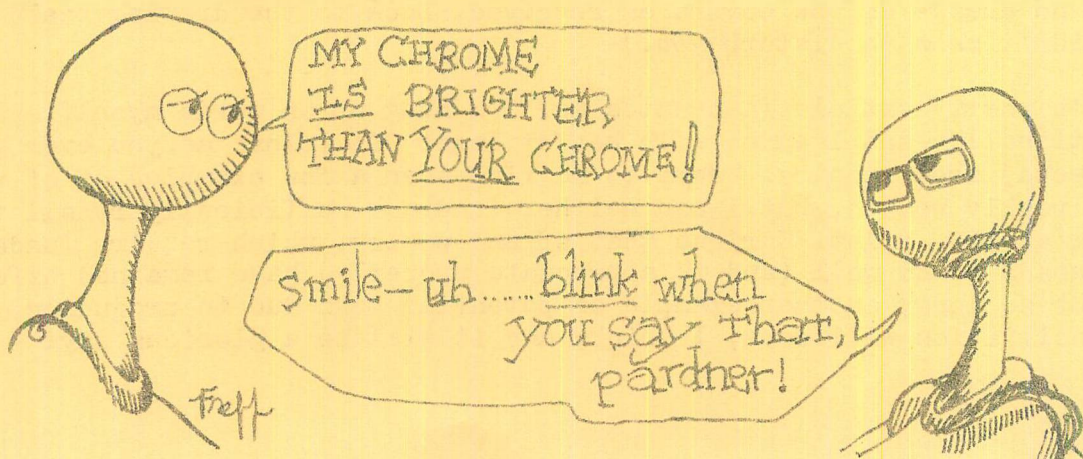 MY CHROME
IS BRIGHTER
THAN YOUR CHROME!
smile— uh...... blink when
you say that,
pardner!
Freff